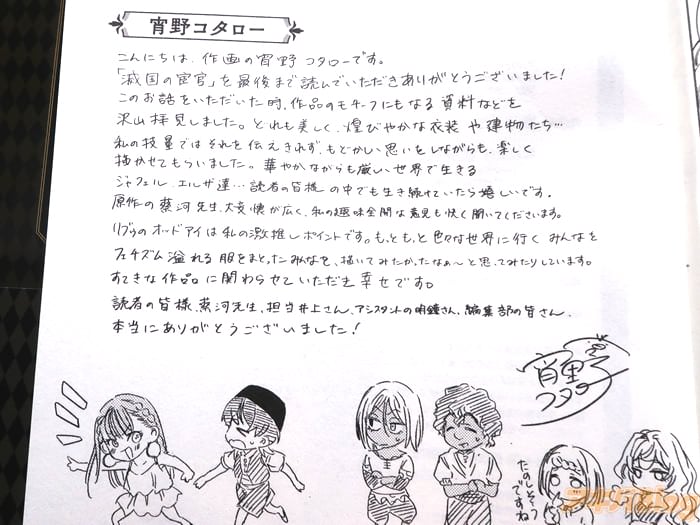 宵野コタロー
こんにちは、作画の宵野コタローです。
「滅国の宦官」を最後まで読んでいただきありがとうございました!
このお話をいただいた時、作品のモチーフにもなる資料などを
沢山拝見しました。どれも美しく、煌びやかな衣装や建物たち…
私の技量ではそれを伝えきれず、もどかしい思いをしながらも、楽しく
描かせてもらいました。華やかながらも厳しい世界で生きる
ジャフェル、エルザ達…読者の皆様の中でも生き続けていたら嬉しいです。
原作の蒸河先生、大変懐が広く、私の趣味全開な意見も快く聞いてくださいます。
リブゥのオッドアイは私の激推しポイントです。もっともっと色々な世界に行くみんなを
フェチズム溢れる服をまとったみんなを、描いてみたかったなぁ〜と思ってみたりしています。
すてきな作品に関わらせていただき幸せです。
読者の皆様、蒸河先生、担当井上さん、アシスタントの明鐘さん、編集部の皆さん、
本当にありがとうございました!
宵野
コタロー
たのしそう
ですね